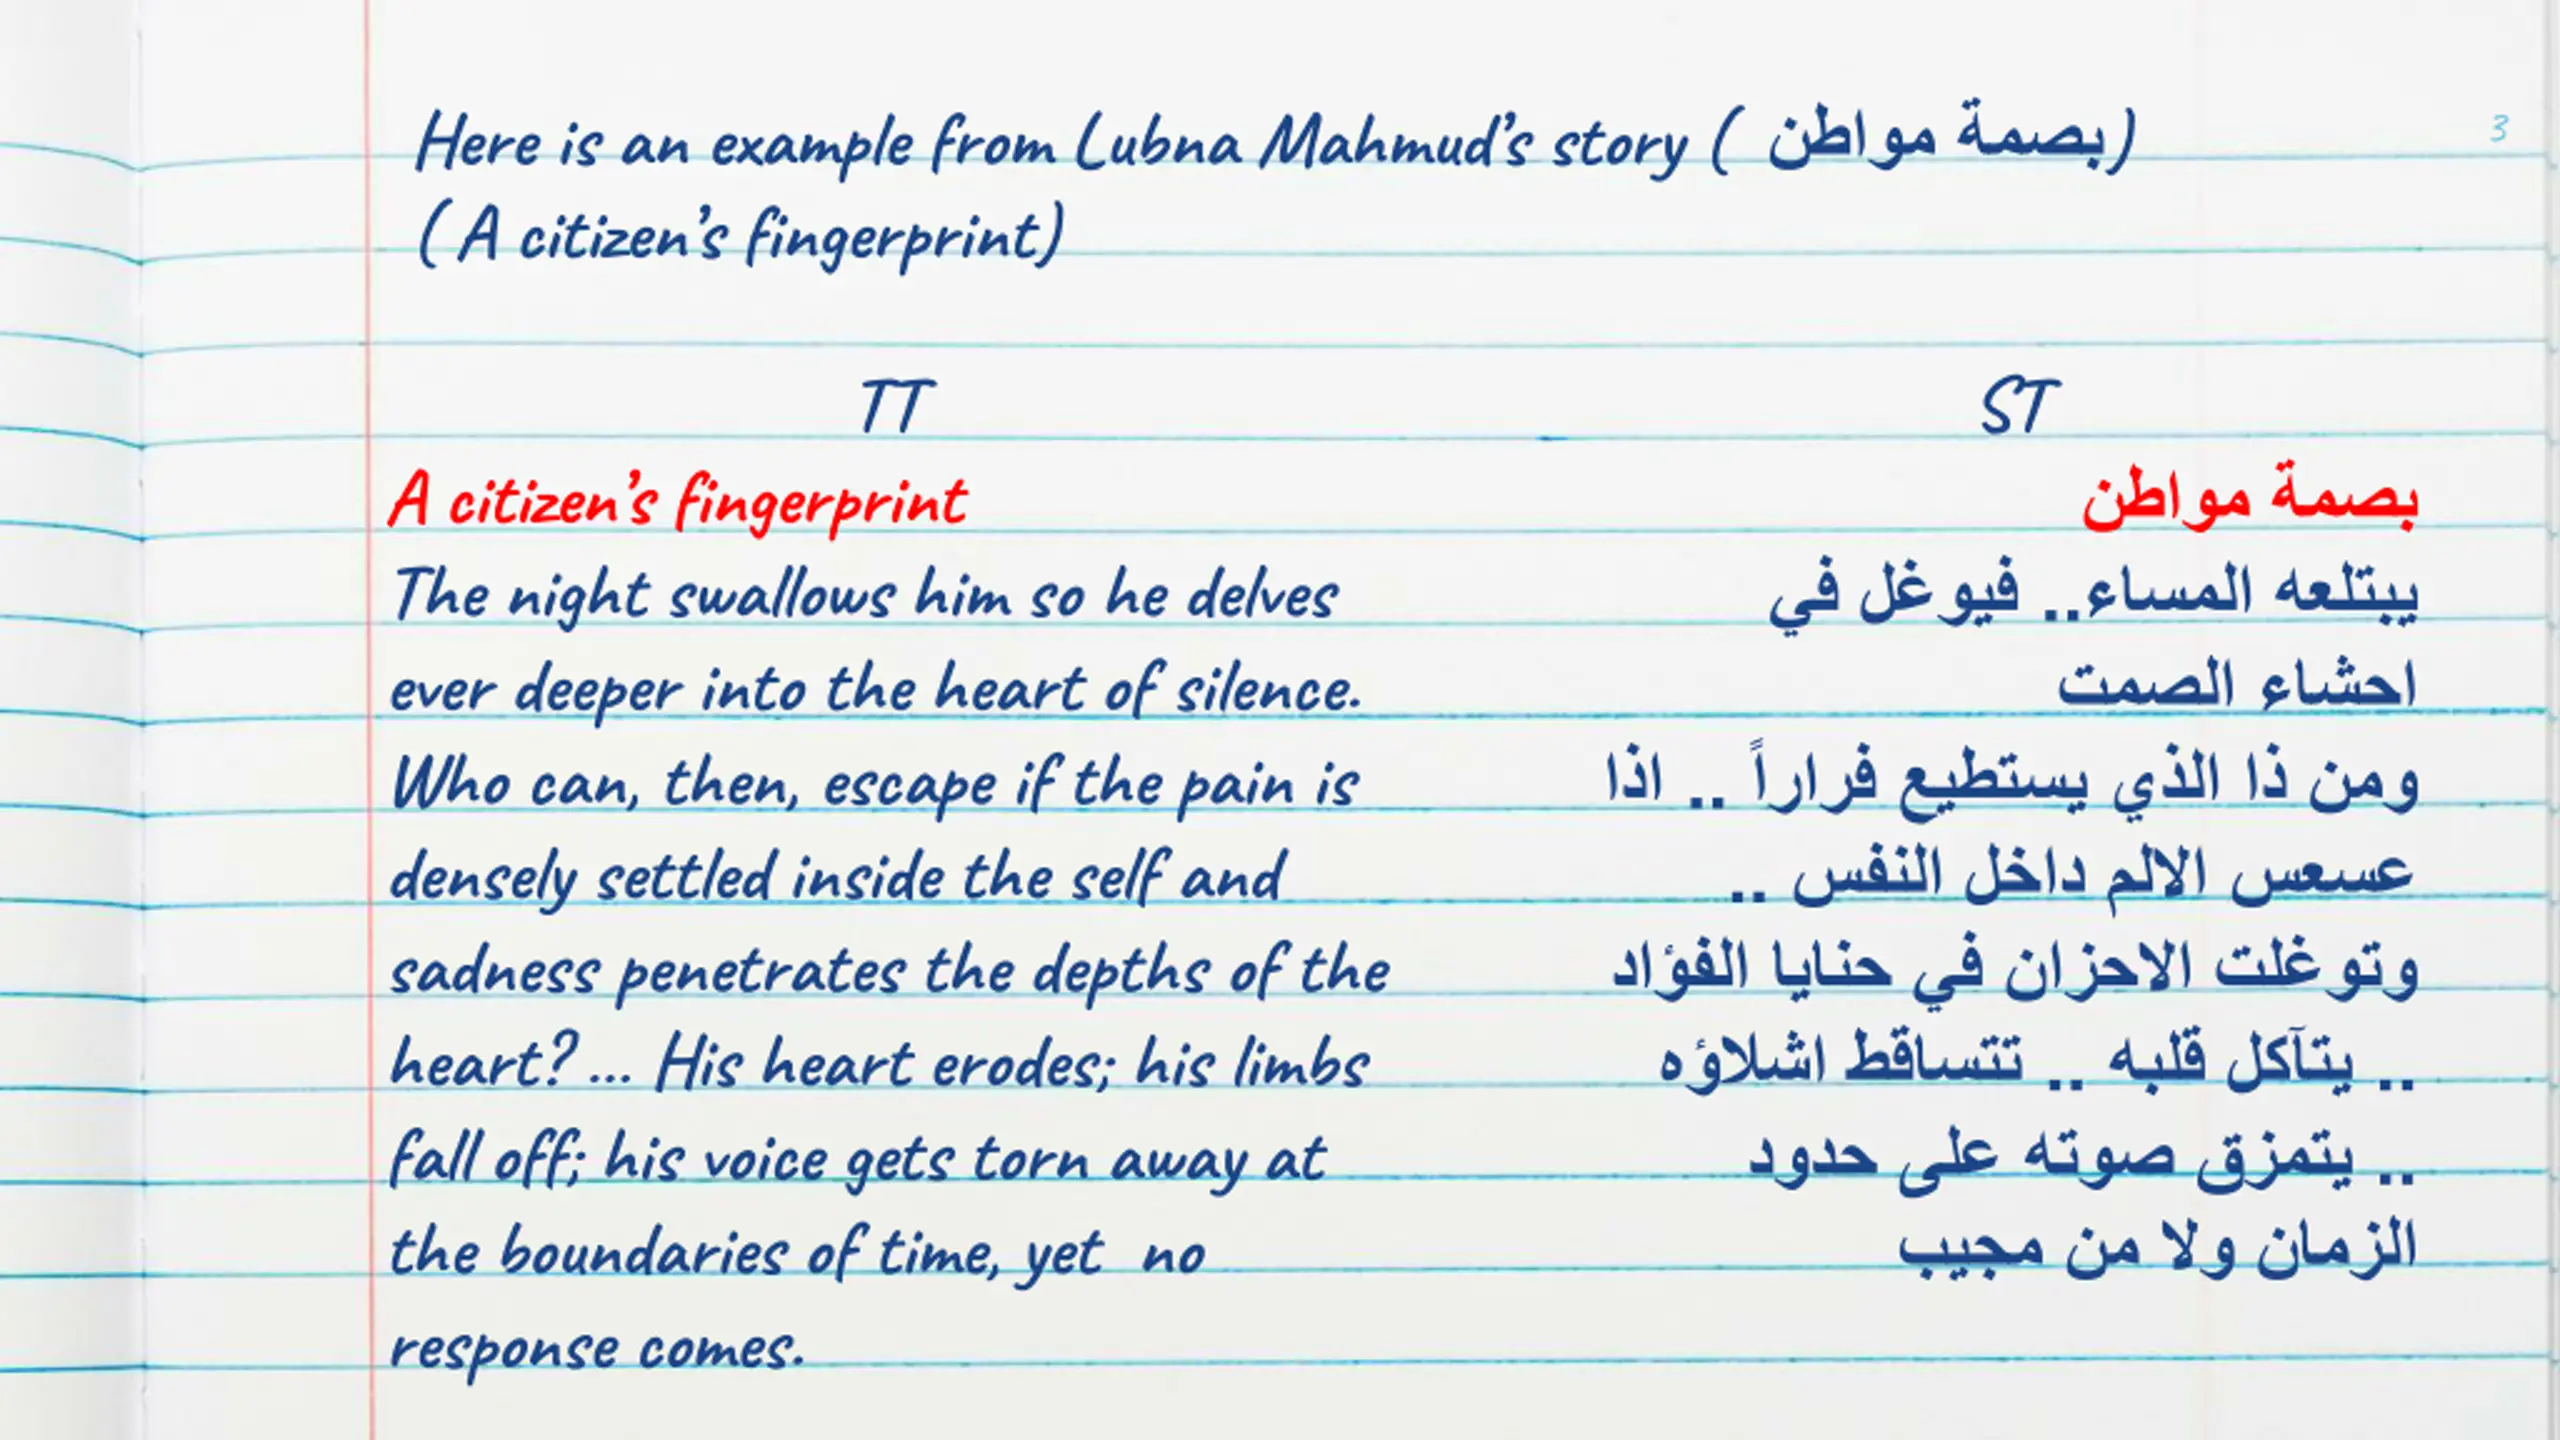 3
Here is an example from Lubna Mahmud's story ( بصمة مواطن)
( A citizen's fingerprint)
TT
A citizen's fingerprint
The night swallows him so he delves
ever deeper into the heart of silence.
Who can, then, escape if the pain is
densely settled inside the self and
sadness penetrates the depths of the
heart? ... His heart erodes; his limbs
fall off; his voice gets torn away at
the boundaries of time, yet  no
response comes.
ST
بصمة مواطن
يبتلعه المساء.. فيوغل في
احشاء الصمت
ومن ذا الذي يستطيع فراراً .. اذا
عسعس الالم داخل النفس ..
وتوغلت الاحزان في حنايا الفؤاد
.. يتآكل قلبه .. تتساقط اشلاؤه
.. يتمزق صوته على حدود
الزمان ولا من مجيب